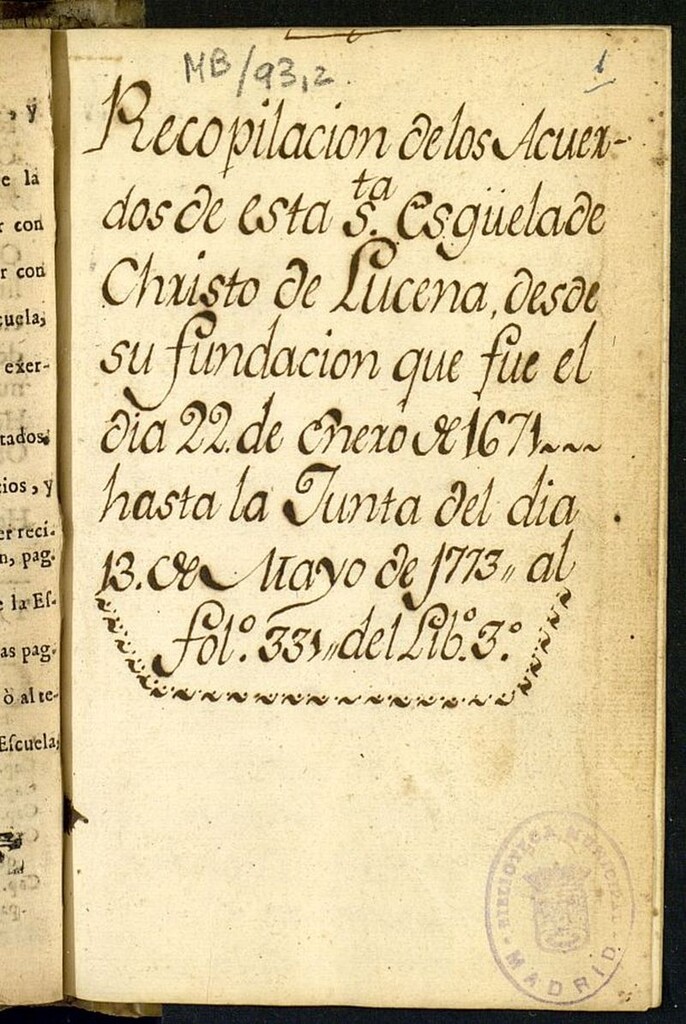 MB/93,2
1
Recopilacion de los Acuer-
dos de esta S.ta Esgüela de
Christo de Lucena, desde
su fundacion que fue el
dia 22. de Enero de 1671~~~
hasta la Junta del dia
13. de Mayo de 1773,, al
fol.º 331,, del Lib.º 3.º
BIBLIOTECA MUNICIPAL
MADRID
, y
e la
r con
r con
cuela,
exer-
tados.
ios, y
er reci.
n, pag.
e la Eſ-
as pag.
ò al te-
Eſcuela,